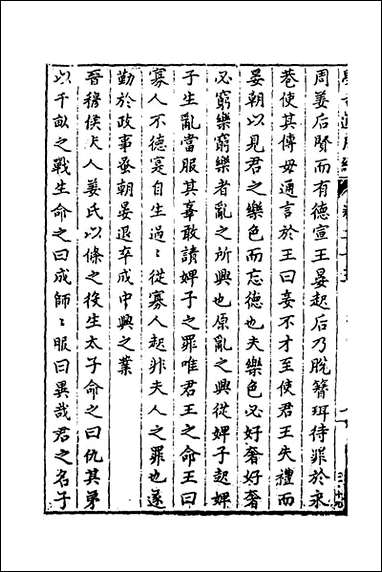 周姜后賢而有德宣王晏起后乃脫簪珥待罪於永
巷使其傅母通言於王曰妾不才至使君王失禮而
晏朝以見君之樂色而忘德也夫樂色必好奢好奢
必窮樂窮樂者亂之所興也原亂之興從婢子起婢
子生亂當服其辜敢請婢子之罪唯君王之命王曰
寡人不德寔自生過〻從寡人起非夫人之罪也遂
勤於政事蚤朝晏退卒成中興之業
晉穆侯夫人姜氏以條之役生太子命之曰仇其弟
以千畝之戰生命之曰成師〻服曰異哉君之名子